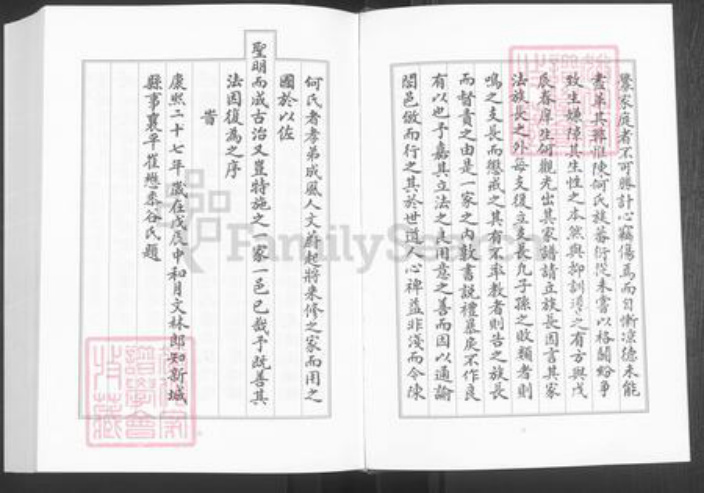 釁家庭者不可勝計心竊傷焉而自慚涼德未能
盡革其弊惟陳何氏族蕃衍從未嘗以格鬬紛爭
致生嫌隙其生性之本然與抑訓導之有方與戊
辰春庠生何觀光出其家譜請立族長因言其家
法族長之外每支復立支長凡子孫之敗類者則
鳴之支長而懲戒之其有不率教者則告之族長
而督責之由是一家之內敦書說禮暴戾不作良
有以也予嘉其立法之良用意之善而因以通諭
闔邑倣而行之其於世道人心裨益非淺而令陳
何氏者孝弟成風人文蔚起將來修之家而用之
國於以佐
聖明而成古治又豈特施之一家一邑已哉予既善其
法因復為之序
旹
康熙二十七年歲在戊辰中和月文林郎知新城
縣事襄平崔懋黍谷氏題
FamilySearch